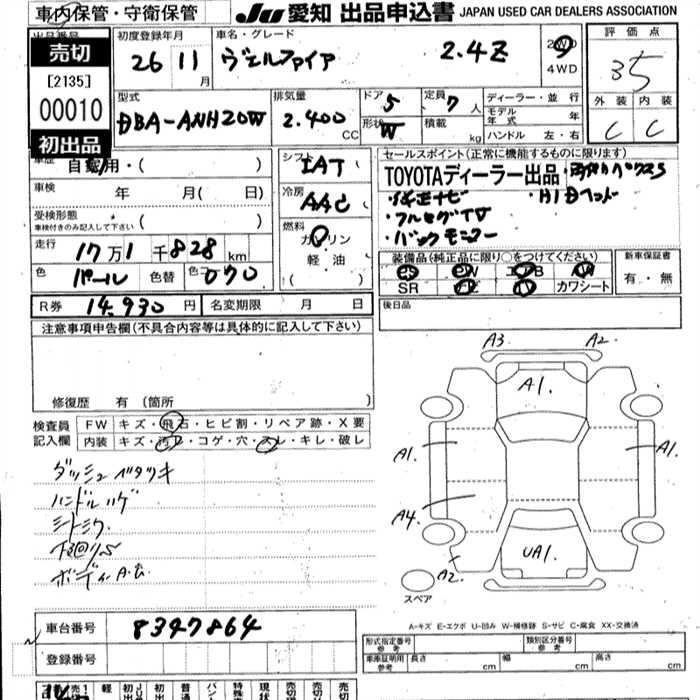 車内保管・守衛保管
JU 愛知 出品申込書 JAPAN USED CAR DEALERS ASSOCIATION
出品番号
売切
[2135]
00010
初出品
初度登録年月
26 11月
車名・グレード
ヴェルファイア 2.4Z
2WD
4WD
評価点
3.5
外装 内装
C C
型式
DBA-ANH20W
排気量
2.400 CC
ドア 5
形状 W
定員 7 人
積載 kg
ディーラー・並行
モデル年式 年
ハンドル 左・右
車歴
自家用・( )
車検 年 月( 日)
受検形態
車検付きのみ記入して下さい ( )
走行 17万1千828km
色 パール 色替 色コード 070
R券 14,930円 名変期限 月 日
シフト IAT ( )
冷房 AAC
燃料
ガソリン
軽・油
( )
セールスポイント(正常に機能するものに限ります)
TOYOTAディーラー出品
・純正ナビ ・HIDヘッド
・フルセグTV
・バックモニター
装備品(純正品に限り○をつけてください)
PS PW エアB AW
SR ナビ TV カワシート
新車保証書
有・無
後日品
注意事項申告欄(不具合内容等は具体的に記入して下さい)
修復歴 有(箇所 )
検査員記入欄
FW キズ・飛石・ヒビ割・リペア跡・X要
内装 キズ・汚レ・コゲ・穴・スレ・キレ・破レ
ダッシュベタツキ
ハンドルハゲ
シートシワ
下回りS
ボディA.U.
A3 A2
A1.
A1. A1.
A4
UA1.
A2
スペア
A-キズ E-エクボ U-凹み W-補修跡 S-サビ C-腐食 XX-交換済
車台番号 8347864
登録番号
形式指定番号 参考
類別区分番号 参考
車庫証明用 参考
長さ cm 幅 cm 高さ cm